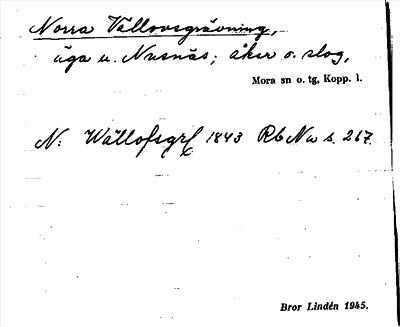 Norra Vållovsgrävning,
äga u. Nusnäs; åker o. slog,
Mora sn o. tg, Kopp. l.
N: Wållofsgrf 1843 Rb Na s. 267.
Bror Lindén 1945.